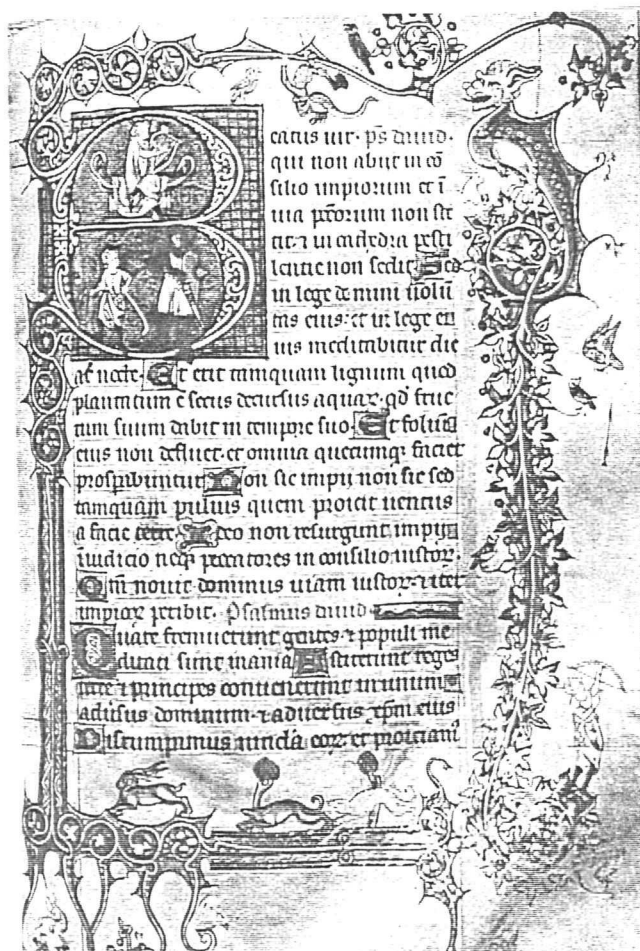 Beatus uir · ps dauid ·
qui non abiit in co
silio impiorum et i
uia pctorum non ste
tit · ⁊ in cathedra pesti
lentie non sedit Sed
in lege domini uolu
tas eius : et in lege ei
ius meditabitur die
ac nocte · Et erit tamquam lignum quod
plantatum e secus decursus aquar · qd fruc
tum suum dabit in tempore suo Et folium
eius non defluet · et omnia quecumq faciet
prosperabuntur Non sic impii non sic sed
tamquam puluis quem proicit uentus
a facie terre Ideo non resurgunt impii
in iudicio neq peccatores in consilio iustor ·
Qm nouit dominus uiam iustor ⁊ iter
impior peribit · Psalmus dauid ·
Quare fremuerunt gentes · ⁊ populi me
ditati sunt inania Astiterunt reges
terre ⁊ principes conuenerunt in unum
aduersus dominum · ⁊ aduersus xpm eius
Disrumpimus uincla eor · et proiciam